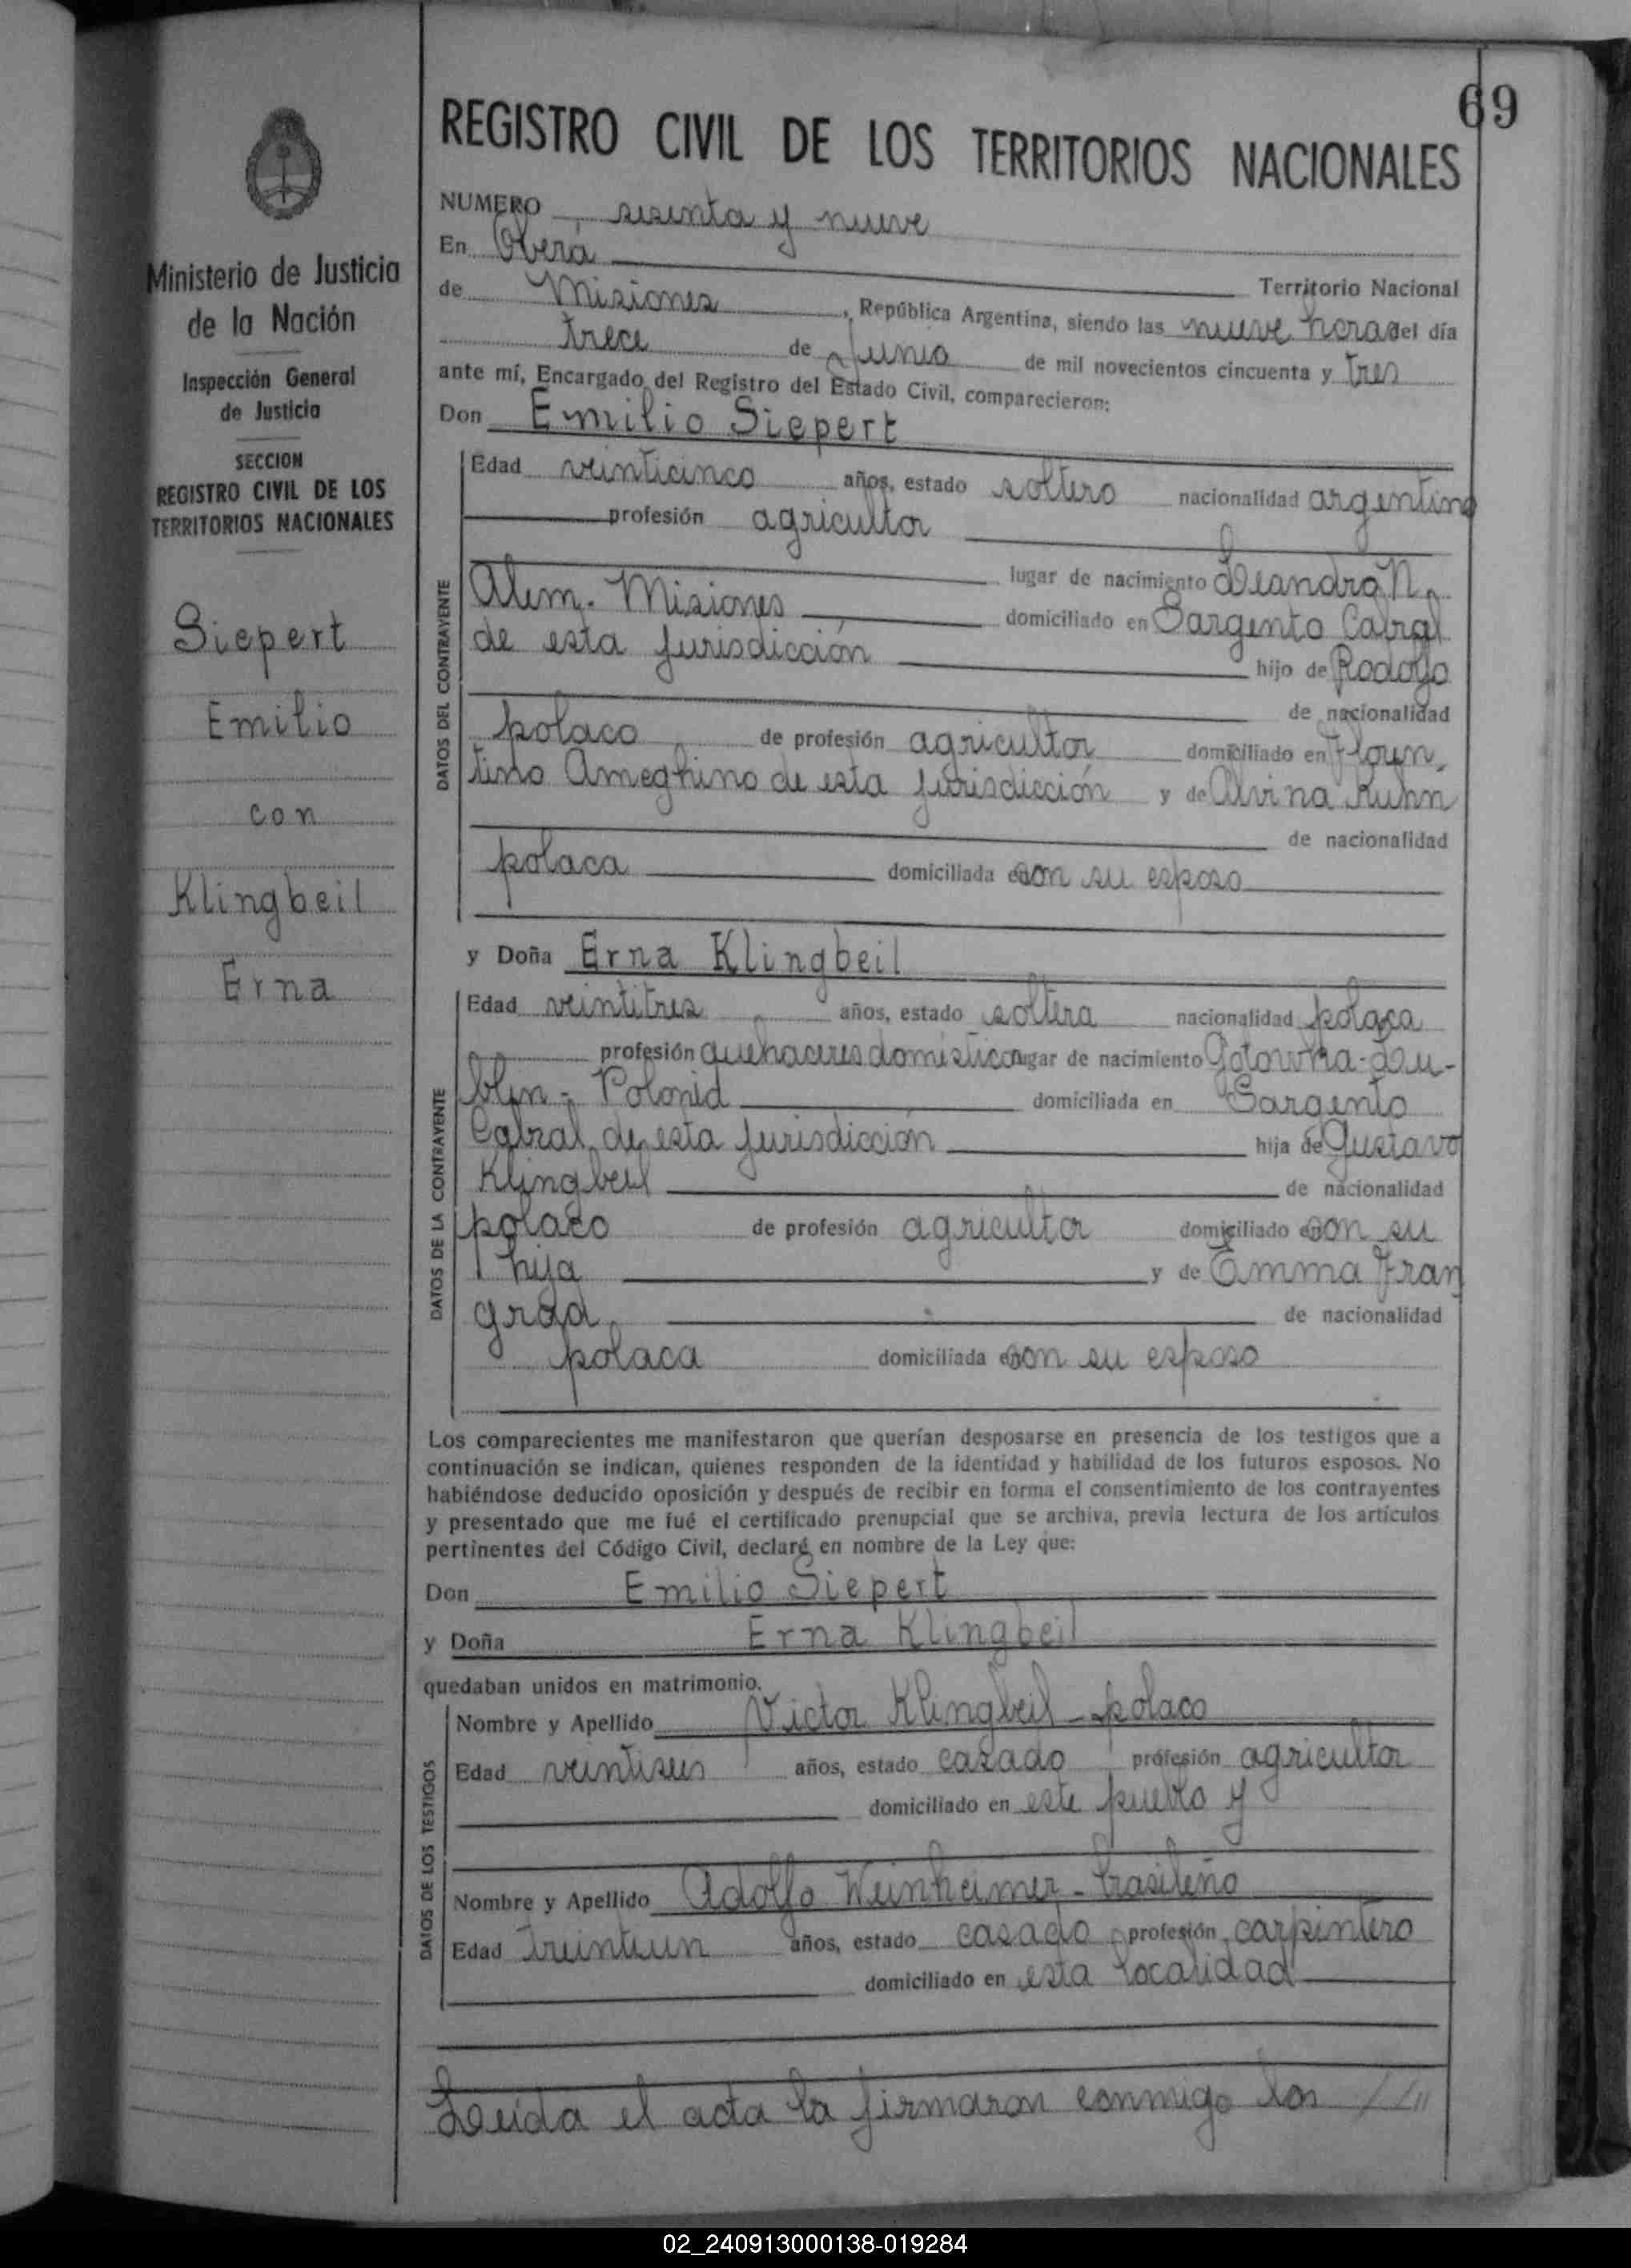 69
REGISTRO CIVIL DE LOS TERRITORIOS NACIONALES
Ministerio de Justicia
de la Nación
Inspección General
de Justicia
SECCION
REGISTRO CIVIL DE LOS
TERRITORIOS NACIONALES
Siepert
Emilio
con
Klingbeil
Erna
NUMERO sesenta y nueve
En Oberá Territorio Nacional
de Misiones, República Argentina, siendo las nueve horas del día
trece de Junio de mil novecientos cincuenta y tres
ante mí, Encargado del Registro del Estado Civil, comparecieron:
Don Emilio Siepert
DATOS DEL CONTRAYENTE
Edad veinticinco años, estado soltero nacionalidad argentino
profesión agricultor
lugar de nacimiento Leandro N.
Alem. Misiones domiciliado en Sargento Cabral
de esta jurisdicción hijo de Rodolfo
de nacionalidad
polaco de profesión agricultor domiciliado en Floren
tino Ameghino de esta jurisdicción y de Alvina Kuhn
de nacionalidad
polaca domiciliada con su esposo
y Doña Erna Klingbeil
DATOS DE LA CONTRAYENTE
Edad veintitres años, estado soltera nacionalidad polaca
profesión quehaceres domesticos lugar de nacimiento
Polonia domiciliada en Sargento
Cabral de esta jurisdicción hija de Gustavo
Klingbeil de nacionalidad
polaco de profesión agricultor domiciliado con su
hija y de Emma Fran
grad de nacionalidad
polaca domiciliada con su esposo
Los comparecientes me manifestaron que querían desposarse en presencia de los testigos que a
continuación se indican, quienes responden de la identidad y habilidad de los futuros esposos. No
habiéndose deducido oposición y después de recibir en forma el consentimiento de los contrayentes
y presentado que me fué el certificado prenupcial que se archiva, previa lectura de los artículos
pertinentes del Código Civil, declaré en nombre de la Ley que:
Don Emilio Siepert
y Doña Erna Klingbeil
quedaban unidos en matrimonio.
DATOS DE LOS TESTIGOS
Nombre y Apellido Victor Klingbeil - polaco
Edad veintiseis años, estado casado profesión agricultor
domiciliado en este pueblo y
Nombre y Apellido Adolfo Weinheimer - brasileño
Edad treintiun años, estado casado profesión carpintero
domiciliado en esta localidad
Leída el acta la firmaron conmigo los ////
02_240913000138-019284